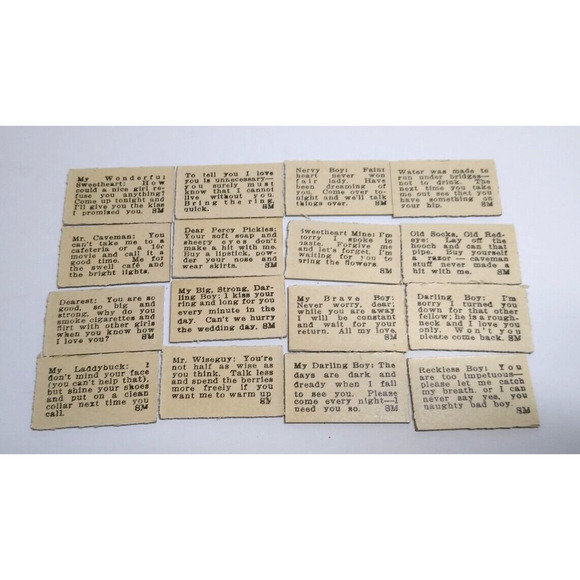 My Wonderful
Sweetheart: How
could a nice girl re-
fuse you anything?
Come up tonight and
I'll give you the kiss
I promised you. SM
To tell you I love
you is unnecessary—
you surely must
know that I cannot
live without you.
Bring the ring,
quick. SM
Nervy Boy: Faint
heart never won
fair lady. Have
been dreaming of
you. Come over to-
night and we'll talk
things over. SM
Water was made to
run under bridges—
not to drink. The
next time you take
me out see that you
have something on
your hip. SM
Mr. Caveman: You
can't take me to a
cafeteria or a 10c
movie and call it a
good time. Me for
the swell café and
the bright lights. SM
Dear Percy Pickles:
Your soft soap and
sheepy eyes don't
make a hit with me.
Buy a lipstick, pow-
der your nose and
wear skirts. SM
Sweetheart Mine: I'm
sorry I spoke in
haste. Forgive me
and let's forget. I'm
waiting for you to
bring the flowers. SM
Old Socks, Old Red-
eye: Lay off the
hooch and can that
pipe. Buy yourself
a razor — caveman
stuff never made a
hit with me. SM
Dearest: You are so
good, so big and
strong, why do you
smoke cigarettes and
flirt with other girls
when you know how
I love you? SM
My Big, Strong, Dar-
ling Boy: I kiss your
ring and long for you
every minute in the
day. Can't we hurry
the wedding day. SM
My Brave Boy:
Never worry, dear;
while you are away
I will be constant
and wait for your
return. All my love.
SM
Darling Boy: I'm
sorry I turned you
down for that other
fellow; he is a rough-
neck and I love you
only. Won't you
please come back. SM
My Laddybuck: I
don't mind your face
(you can't help that),
but shine your shoes
and put on a clean
collar next time you
call. SM
Mr. Wiseguy: You're
not half as wise as
you think. Talk less
and spend the berries
more freely if you
want me to warm up
SM
My Darling Boy: The
days are dark and
dready when I fail
to see you. Please
come every night—I
need you so. SM
Reckless Boy: You
are too impetuous—
please let me catch
my breath, or I can
never say yes, you
naughty bad boy.
SM